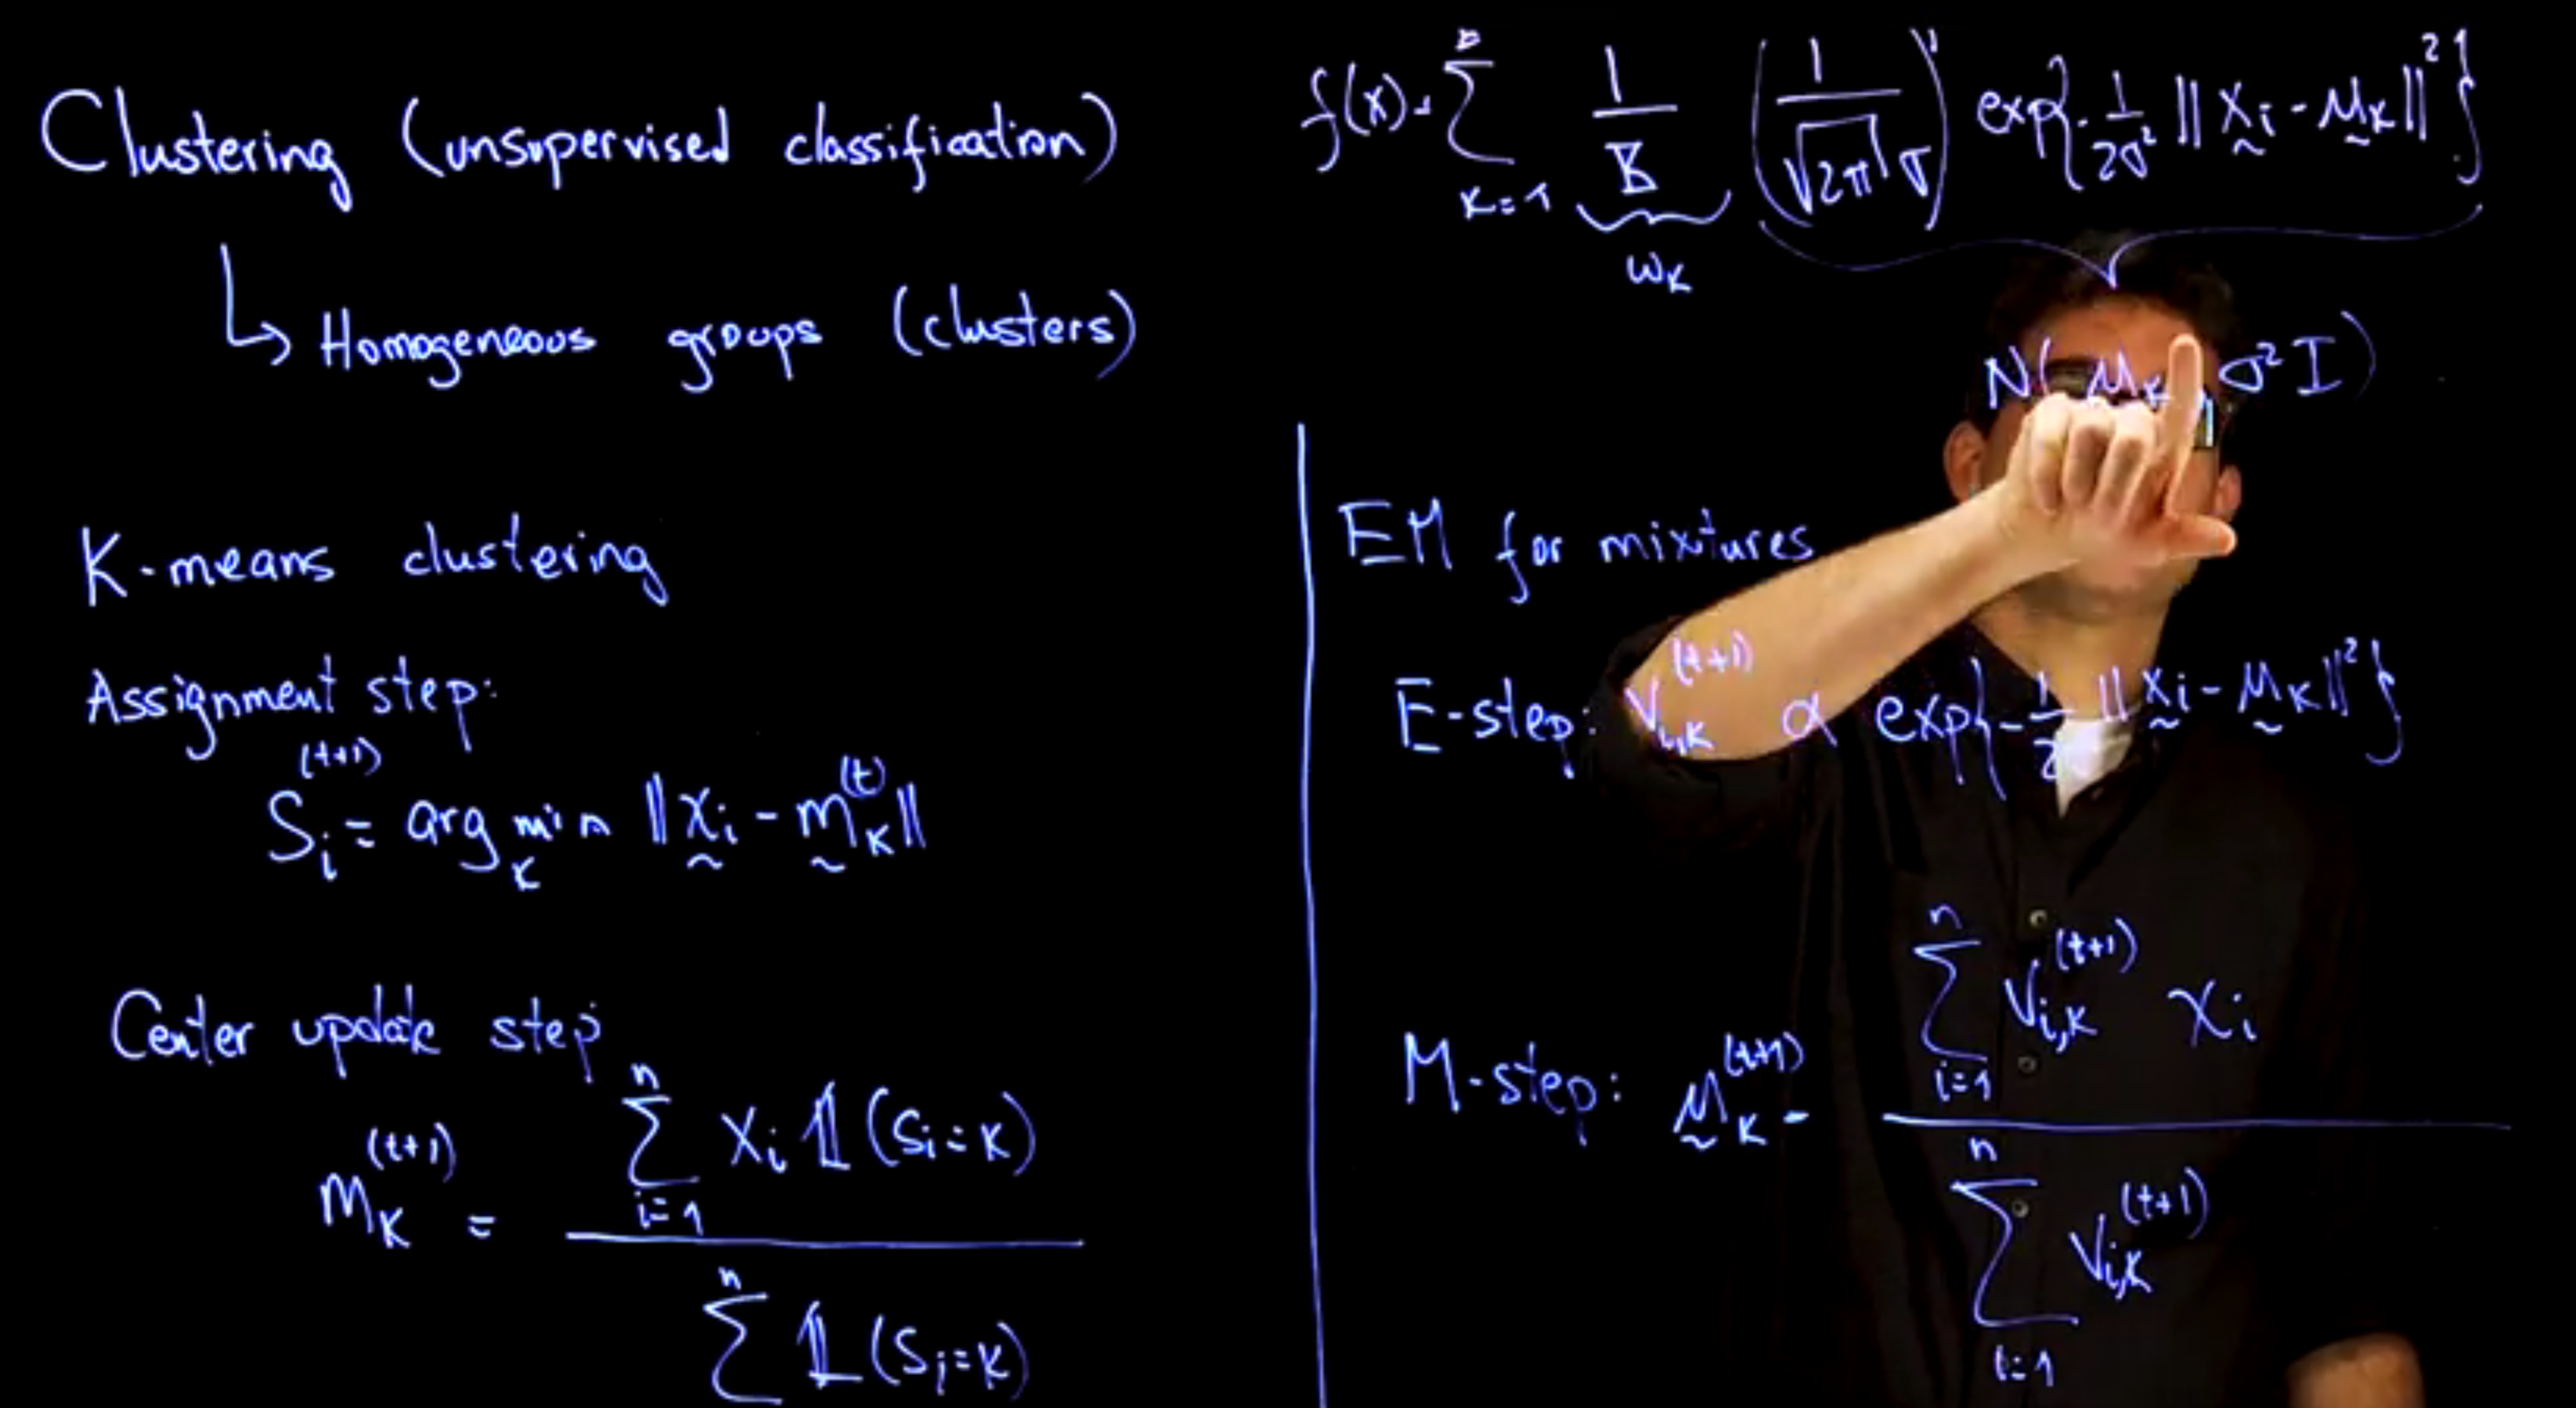 Clustering (unsupervised classification)
↳ Homogeneous groups (clusters)
K-means clustering
Assignment step:
S_i^(t+1) = arg min_K ‖x_i - m_K^(t)‖
Center update step
m_K^(t+1) = ∑_{i=1}^n x_i 𝟙(S_i = K) / ∑^n 𝟙(S_i = K)
f(x) = ∑_{K=1} 1/K (1/(√2π σ)) exp{-1/2σ² ‖x_i - μ_K‖²}
ω_K
N(μ_K, σ² I)
EM for mixtures
E-step: V_{i,K}^(t+1) ∝ exp{-1/2 ‖x_i - μ_K‖²}
M-step: μ_K^(t+1) = ∑_{i=1}^n V_{i,K}^(t+1) x_i / ∑_{i=1}^n V_{i,K}^(t+1)